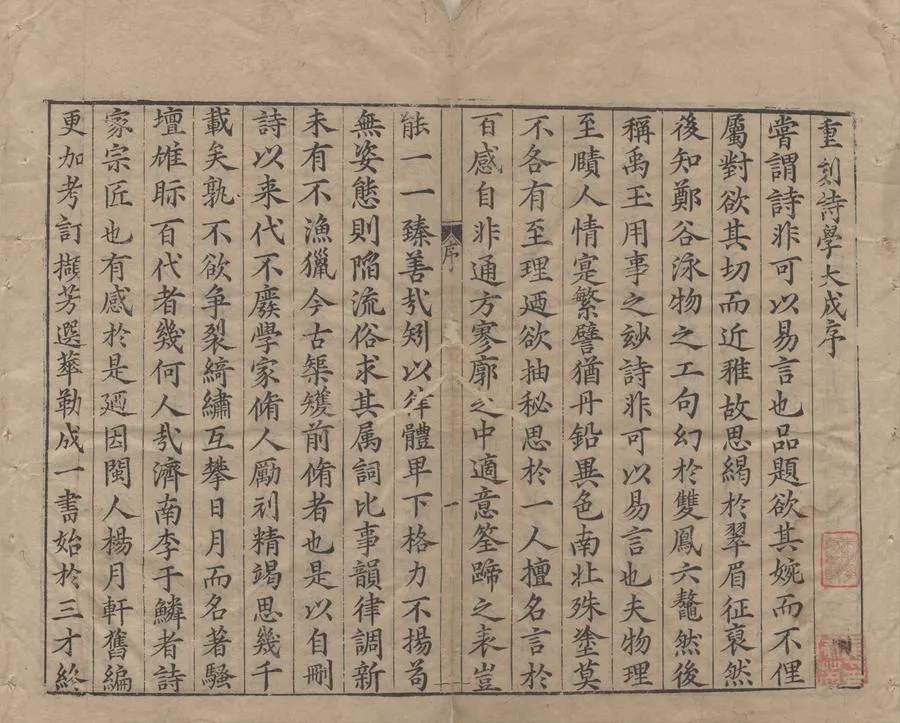 重刻詩學大成序
嘗謂詩非可以易言也品題欲其婉而不俚
屬對欲其切而近雅故思緆於翠眉征裒然
後知鄭谷泳物之工句幻於雙鳳六鼇然後
稱禹玉用事之玅詩非可以易言也夫物理
至賾人情寔繁譬猶丹鉛異色南北殊塗莫
不各有至理廼欲抽秘思於一人擅名言於
百感自非通方寥廓之中適意筌蹄之表豈
序
一
能一一臻善㢤矧以年體卑下格力不揚苟
無姿態則陷流俗求其属詞比事韻律調新
未有不漁獵今古榘矱前脩者也是以自刪
詩以来代不廢學家脩人勵刓精竭思幾千
載矣孰不欲争裂綺繡互攀日月而名著騷
壇雄眎百代者幾何人㢤濟南李于鱗者詩
家宗匠也有感於是廼因閩人楊月軒舊編
更加考訂擷芳選華勒成一書始於三才終